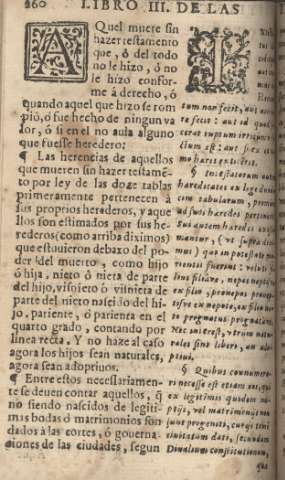 260 LIBRO III. DE LAS
AQuel muere sin
hazer testamento
que, ó del todo
no le hizo, ó no
le hizo confor-
me á derecho, ó
quando aquel que hizo se rom
pió, ó fue hecho de ningun va
lor, ó si en el no aula alguno
que fuesse heredero:
¶ Las herencias de aquellos
que mueren sin hazer testamẽ-
to por ley de las doze tablas
primeramente pertenecen á
sus proprios herederos, y aque
llos son estimados por sus he-
rederos (como arriba diximos)
que estuuieron debaxo del po-
der del muerto, como hijo
ó hija, nieto ó nieta de parte
del hijo, visnieto ó visnieta de
parte del nieto nascido del hi-
jo, pariente, ó parienta en el
quarto grado, contando por
linea recta. Y no haze al caso
agora los hijos sean naturales,
agora sean adoptiuos.
¶ Entre estos necessariamen-
te se deuen contar aquellos, q̃
no siendo nascidos de legiti-
mas bodas ó matrimonios son
dados á las cortes, ó governa-
ciones de las ciudades, segun
tum non fecit, aut
te fecit: aut id quod
cerat ruptum irritum
ctum est: aut si ex eo
mo hæres extiterit.
§ Intestatorum autem
hæreditates ex lege duode
cim tabularum, primum
ad suos hæredes pertinent
Sui autem hæredes existi
mantur, (vt supra dixi
mus) qui in potestate mo
rientis fuerunt: veluti
lius filiave, nepos neptis ve
ex filio, pronepos proneptis
ve ex nepote, ex filio na
to prognatus prognatave.
Nec interest, vtrum natu
rales sint liberi, an ado
ptiui.
§ Quibus connumera
ri necesse est etiam eos, qui
ex legitimis quidem nu
ptijs, vel matrimonijs non
sunt progeniti, curijs tamen
ciuitatum dati, secundum
Diualium constitutionum,
qua